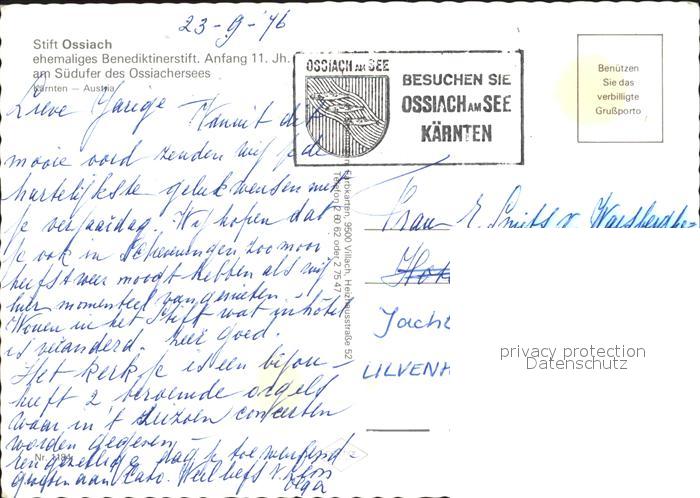 23-9-'76
Stift Ossiach
ehemaliges Benediktinerstift. Anfang 11. Jh.
am Südufer des Ossiachersees
Kärnten — Austria
OSSIACH AM SEE
BESUCHEN SIE
OSSIACH AM SEE
KÄRNTEN
Benützen
Sie das
verbilligte
Grußporto
Lieve Jarige Vanuit dit
mooie oord zenden wij je de
hartelijkste gelukwensen met
je verjaardag. Wij hopen dat
je ook in Scheveningen zoo mooi
herfstweer moogt hebben als wij
hier momenteel van genieten.
Wonen in het Stift wat in hôtel
is veranderd. Zeer goed.
Het kerkje is een bijou
heeft 2 beroemde orgels
waar in 't seizoen concerten
worden gegeven
een gezellige dag je toewensend
groeten aan Cato. Veel liefs v.
Olga
Nr.
Farbkarten, 9500 Villach, Heizhausstraße 52
Telefon 2 80 62 oder 2 75 47
Frau E. Smits v.
Jacht
LILVENH
privacy protection
Datenschutz